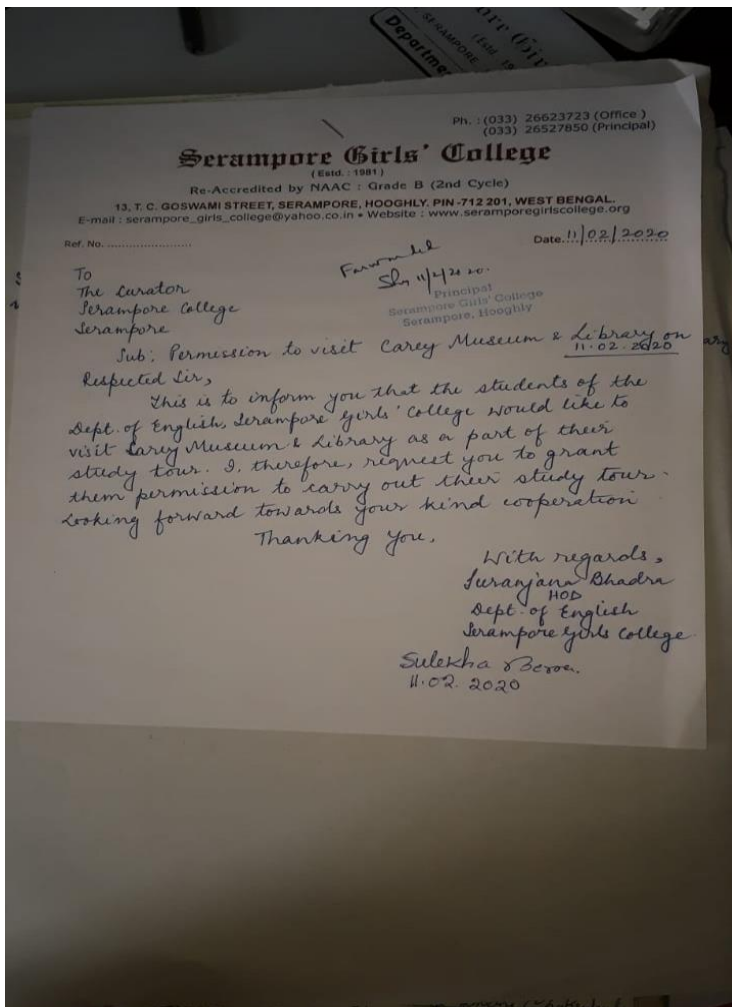 orr Gir
(Estd. 19
SERAMPORE
Departme
Ph. : (033) 26623723 (Office)
(033) 26527850 (Principal)
Serampore Girls' College
(Estd. : 1981)
Re-Accredited by NAAC : Grade B (2nd Cycle)
13, T. C. GOSWAMI STREET, SERAMPORE, HOOGHLY. PIN-712 201, WEST BENGAL.
E-mail : serampore_girls_college@yahoo.co.in • Website : www.seramporegirlscollege.org
Ref. No. ......................
Date. 11/02/2020
Forwarded
Principal
Serampore Girls' College
Serampore, Hooghly
To
The Curator
Serampore College
Serampore
Sub: Permission to visit Carey Museum & Library on
11.02.2020
Respected Sir,
This is to inform you that the students of the
Dept. of English, Serampore Girls' College would like to
visit Carey Museum & Library as a part of their
study tour. I, therefore, request you to grant
them permission to carry out their study tour.
Looking forward towards your kind cooperation
Thanking you,
With regards,
Suranjana Bhadra
HOD
Dept. of English
Serampore Girls College
Sulekha
11.02.2020